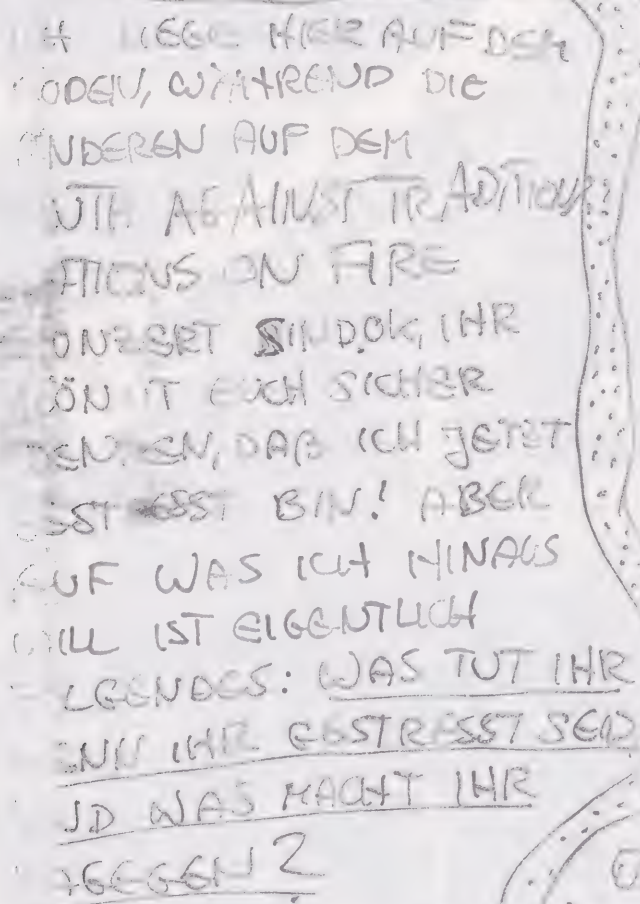 H LIEGE HIER AUF DEM
ODEN, WÄHREND DIE
NDEREN AUF DEM
UTH AGAINST TRADITION?
ATIONS ON FIRE
ONZERT SIND. OK, IHR
ÖNNT EUCH SICHER
ENKEN, DAß ICH JETZT
ESST BIN! ABER
AUF WAS ICH HINAUS
WILL IST EIGENTLICH
LGENDES: WAS TUT IHR
ENN IHR GESTRESST SEID
ND WAS MACHT IHR
AGEGEN?